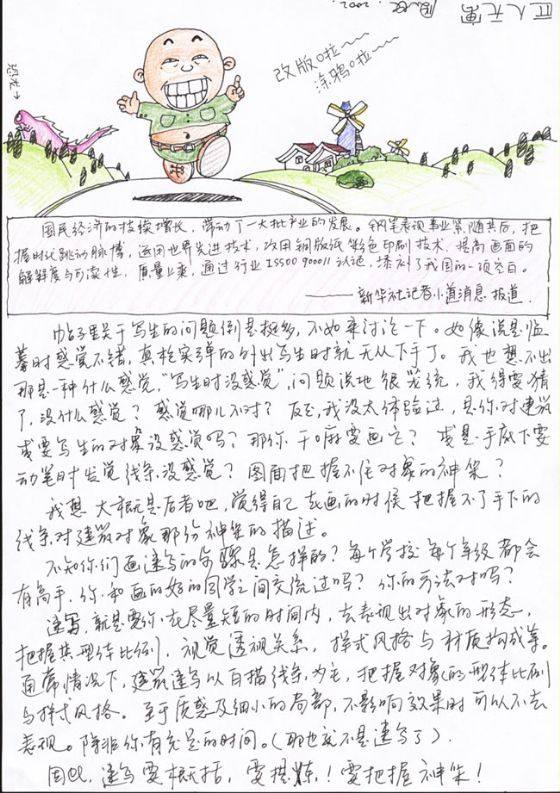 匠人无寓
2002.
改版啦～～
涂鸦啦～～
恐龙→
国民经济的持续增长，带动了一大批产业的发展。钢笔表现事业紧随其后，把
握时代跳动脉搏，运用世界先进技术，改用铜版纸彩色印刷技术，提高画面的
解释度与可读性，质量上乘，通过行业IS500 90001认证，填补了我国的一项空白。
——新华社记者小道消息 报道
帖子里关于写生的问题倒是挺多，不如来讨论一下。她像说是临
摹时感觉不错，真枪实弹的外出写生时就无从下手了。我也想不出
那是一种什么感觉，“写生时没感觉”，问题说地很笼统，我得要猜
了，没什么感觉？感觉哪儿不对？反正，我没太体验过，是你对建筑
或要写生的对象没感觉吗？那你干嘛要画它？或是手底下要
动笔时发觉线条没感觉？图面把握不住对象的神采？
我想大概是后者吧，觉得自己在画的时候把握不了手下的
线条对建筑对象那份神采的描述。
不知你们画速写的步骤是怎样的？每个学校每个年级都会
有高手，你和画的好的同学之间交流过吗？你的方法对吗？
速写，就是要你在尽量短的时间内，去表现出对象的形态，
把握其型体比例，视觉透视关系，样式风格与材质构成等。
通常情况下，建筑速写以白描线条为主，把握对象的型体比例
与样式风格。至于质感及细小的局部，不影响效果时可以不去
表现。除非你有充足的时间。（那也就不是速写了）.
因此，速写要概括，要提炼！要把握神采！